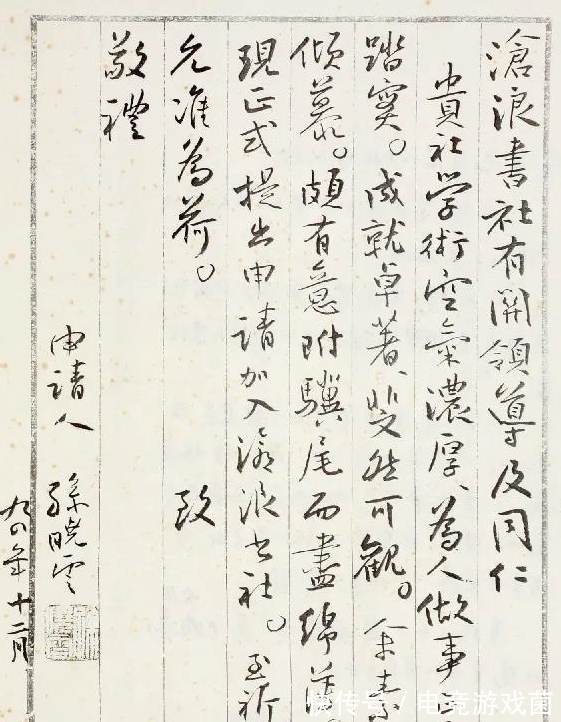 滄浪書社有関領導及同仁
貴社学術空氣濃厚、為人做事
踏實。成就卓著、斐然可觀。余素
傾慕。頗有意附驥尾而盡綿薄。
現正式提出申請加入滄浪書社。至祈
允准為荷。 致
敬禮
申請人 孫曉雲
九四年十二月
快传号/电竞游戏菌